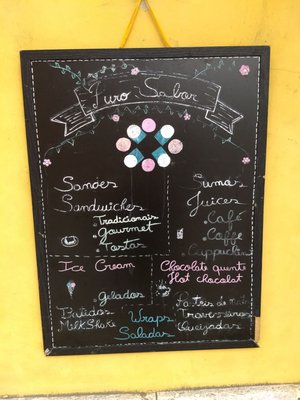 Puro Sabor
Sandes
Sandwiches
Tradicionais
Gourmet
Tostas
Sumos
Juices
Café
Coffe
Cappuchino
Ice Cream
Gelados
Batidos
MilkShake
Chocolate quente
Hot chocolat
Pastéis de
Travesseiros
Queijadas
Wraps
Saladas